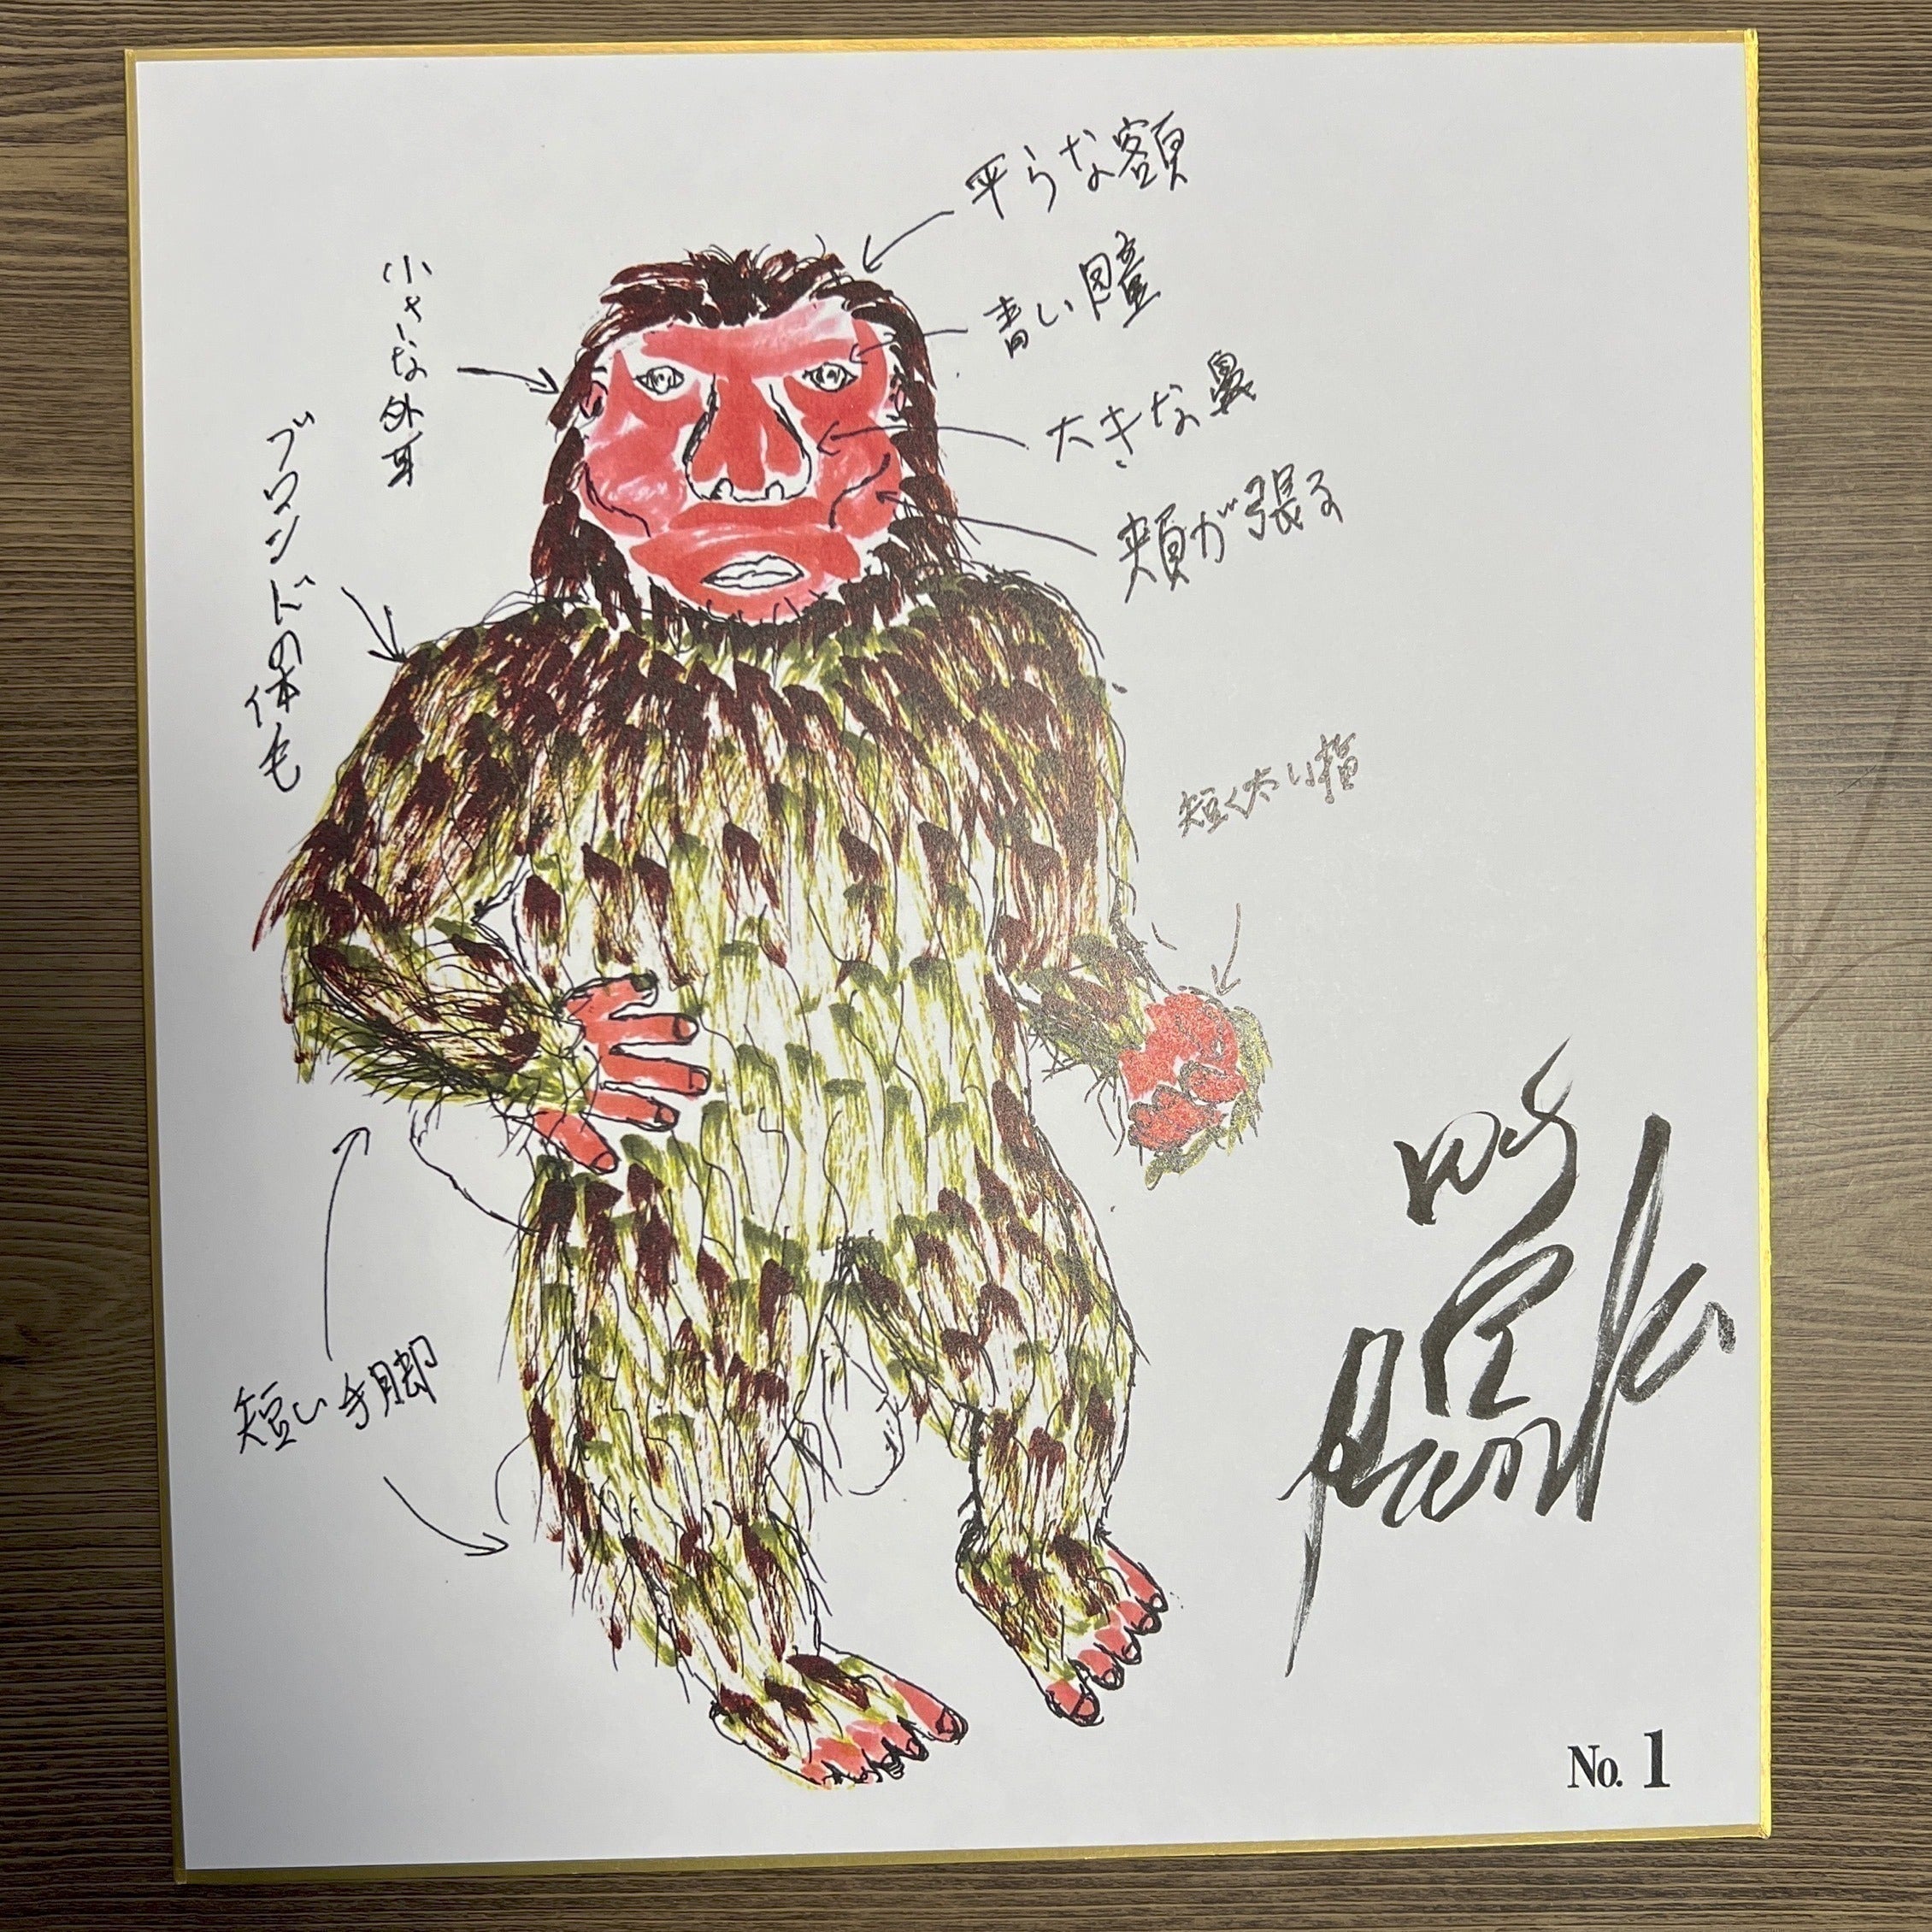 平らな額
青い瞳
大きな鼻
頬が張る
小さな外耳
ブロンドの体毛
短く太い指
短い手脚
No. 1